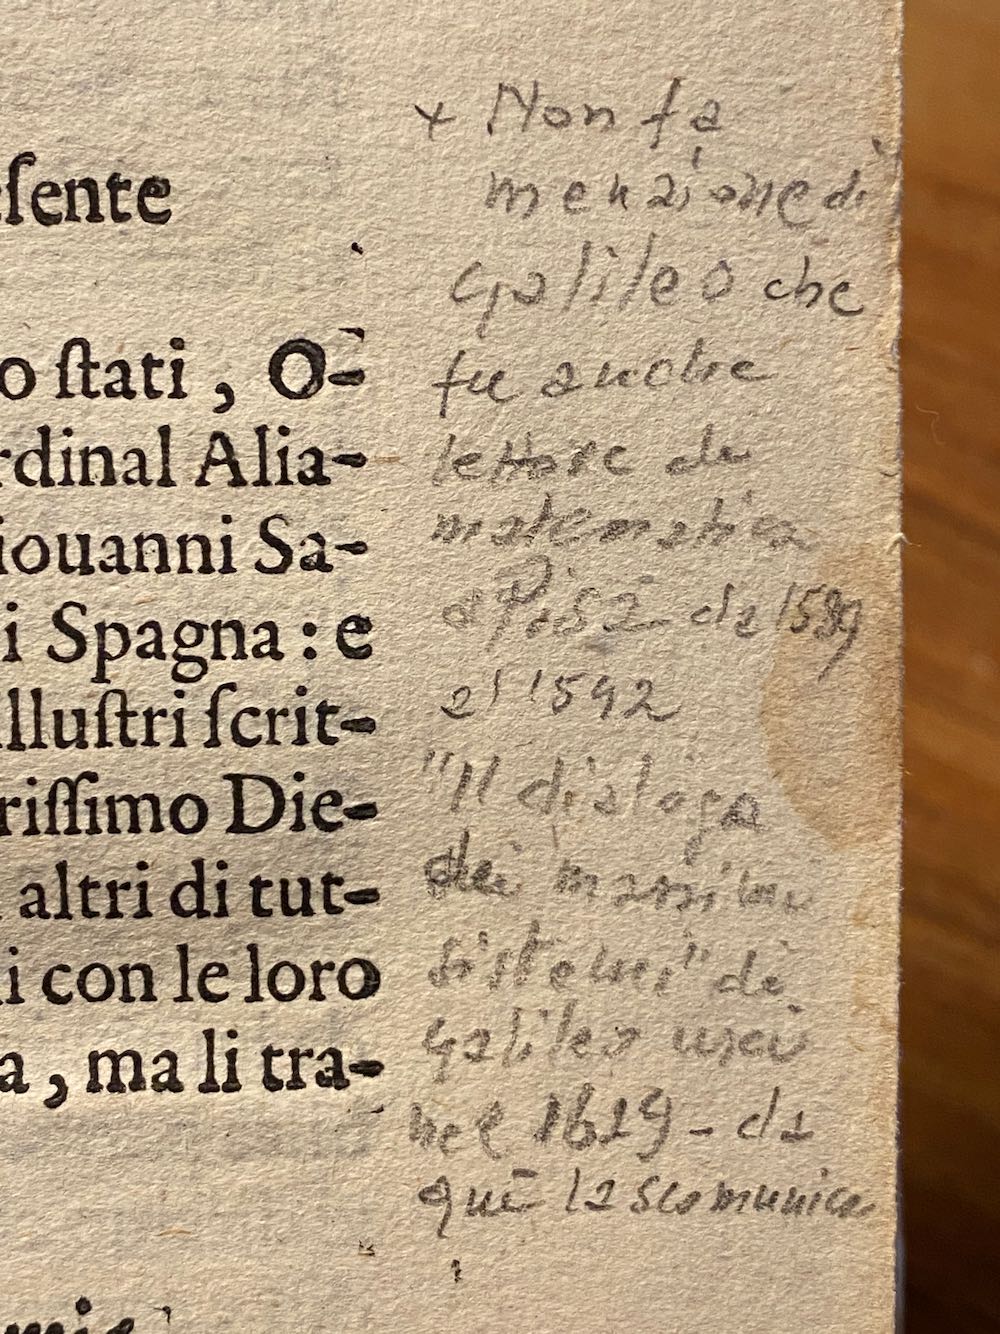 + Non fa
menzione di
Galileo che
fu anche
lettore di
matematica
a Pisa da 1589
al 1592
"Il dialogo
dei massimi
sistemi" di
Galileo uscì
nel 1629 - da
qui la scomunica
eſente
o ſtati, O-
rdinal Alia-
iouanni Sa-
i Spagna: e
lluſtri ſcrit-
riſſimo Die-
altri di tut-
i con le loro
a, ma li tra-